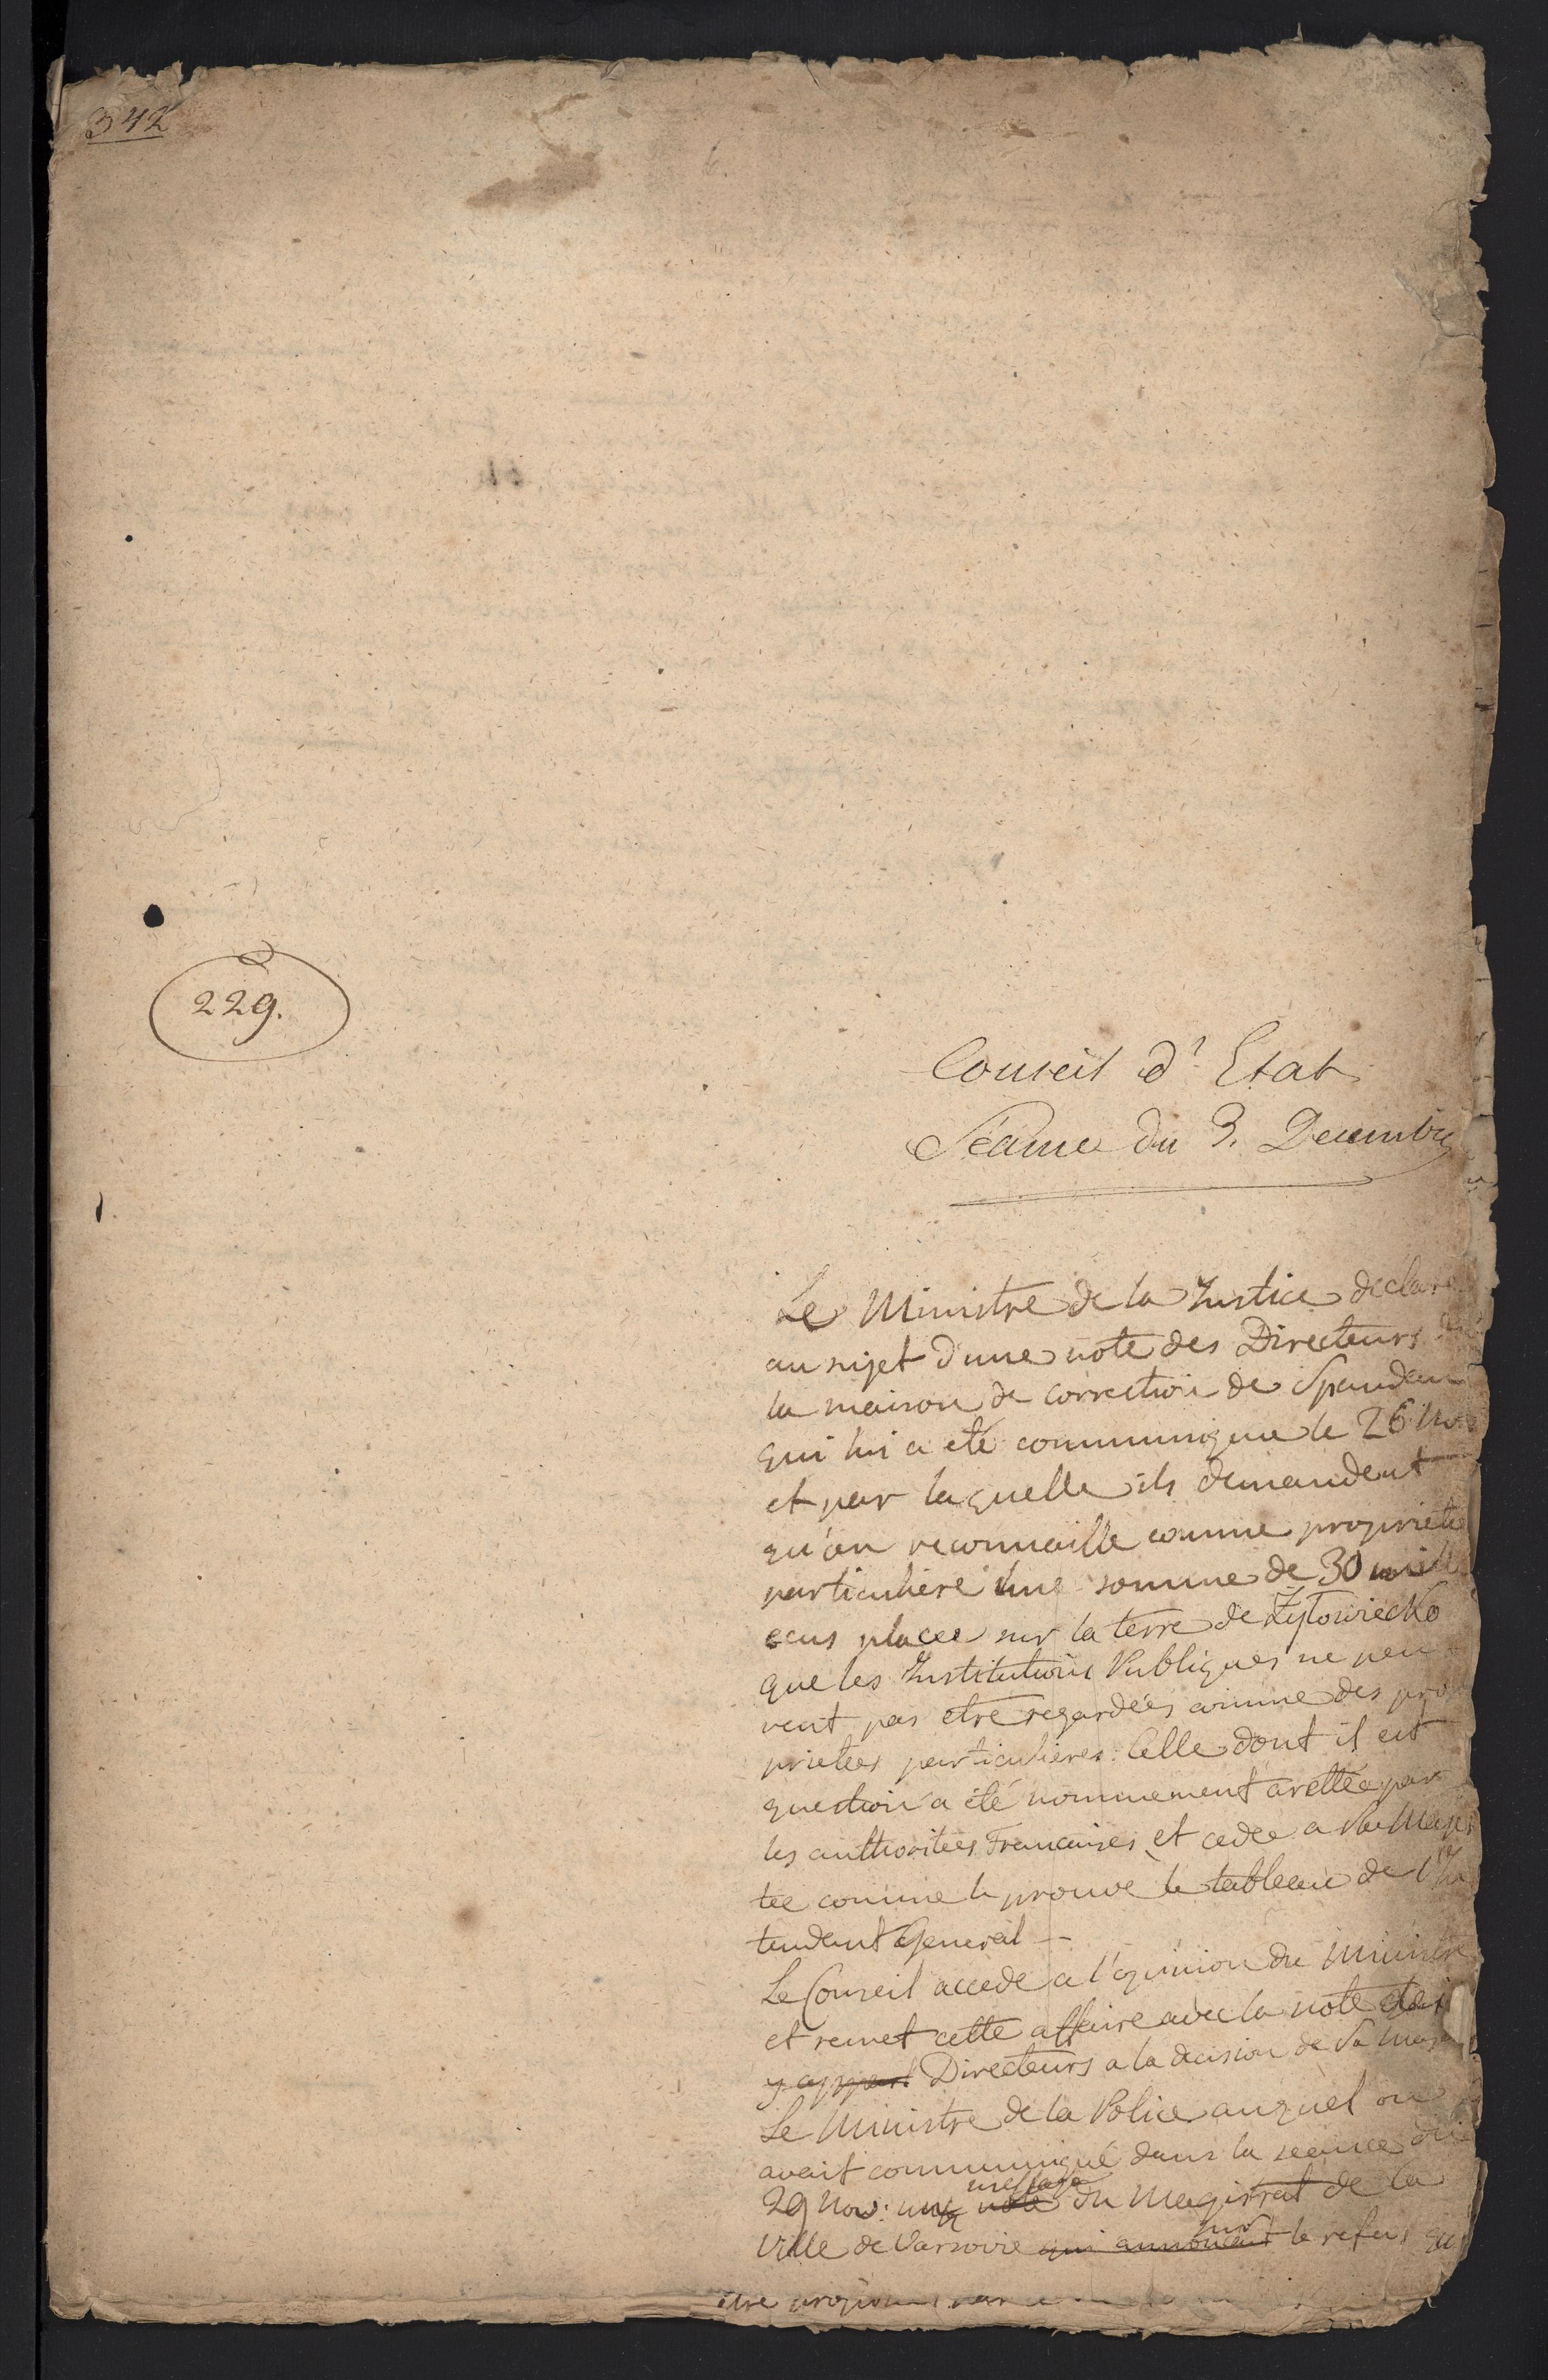 342
229.
Conseil d'Etat
Séance du 3. Decembre
Le Ministre de la Justice declare
au sujet d'une note des Directeurs de
la maison de correction de Spandau
qui lui a eté communiquee le 26 Nov
et par laquelle ils demandent
qu'on reconnaisse comme propriete
particuliere une somme de 30 mille
ecus placee sur la terre de Zytowiecko
que les Institutions Publiques ne peu
vent pas etre regardées comme des pro
prietees particulieres. Celle dont il est
question a été nommement arettée par
les authoritees Francaises et cedee a Sa Majes
tee comme le prouve le tableau de l'In
tendant General —
Le Conseil accede a l'opinion du Ministre
et remet cette affaire avec la note des
Directeurs a la decision de Sa Maj
Le Ministre de la Police auquel on
avait communiqué dans la seance du
29 Nov: un note message du Magistrat de la
Ville de Varsovie qui annoncait sur le refus
etre